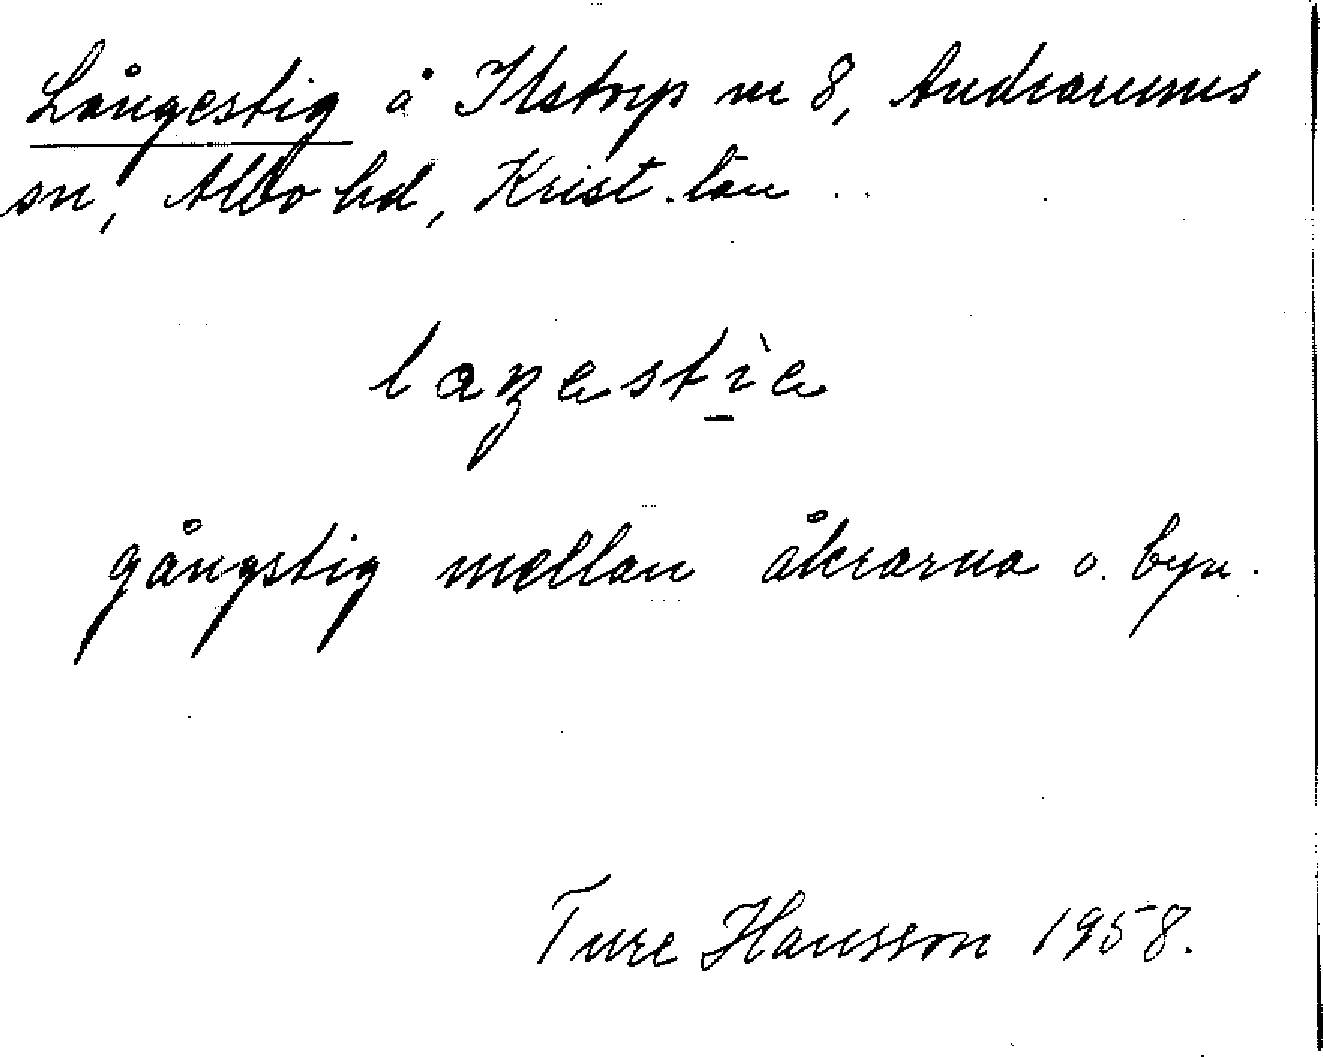 Långestig å Ilstorp nr 8, Andrarums
sn, Albo hd, Krist. län
gångstig mellan åkrarna o. byn.
Ture Hansson 1958.